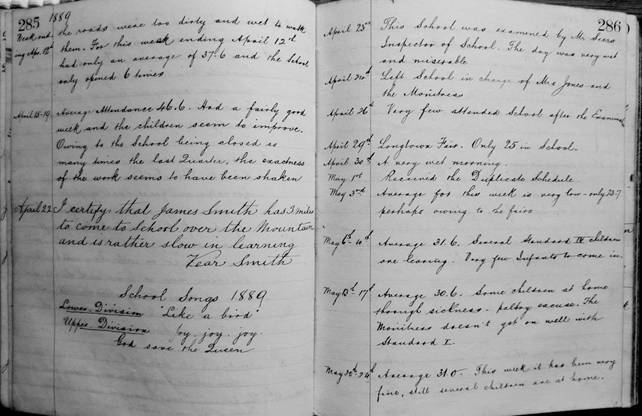 285
1889
Week end
ing Apr. 12th
the roads were too dirty and wet to walk
them. For this week ending April 12th
had only an average of 37.6 and the School
only opened 6 times
April 15-19
Average Attendance 46.6. Had a fairly good
week and the children seem to improve.
Owing to the School being closed so
many times the last Quarter, the exactness
of the work seems to have been shaken
April 22
I certify that James Smith has 3 miles
to come to School over the Mountain
and is rather slow in learning
Vear Smith
School Songs 1889
Lower Division "Like a bird"
Upper Division Joy. joy. joy.
God save the Queen
286
April 23rd
This School was examined by Mr
Inspector of School. The day was very wet
and miserable
April 24th
Left School in charge of Mrs Jones and
the Monitress
April 26th
Very few attended School after the Examina
April 29th
Longtown Fair. Only 25 in School.
April 30th
A very wet morning.
May 1st
Received the Duplicate Schedule
May 3rd
Average for this week is very low - only 23.7
perhaps owing to the fair
May 6th - 10th
Average 31.6. Several Standard IV children
are leaving. Very few Infants to come in.
May 13th - 17th
Average 30.6. Some children at home
through sickness - paltry excuse. The
Monitress doesn't get on well with
Standard I.
May 20th - 24th
Average 31.0. This week it has been very
fine, still several children are at home.